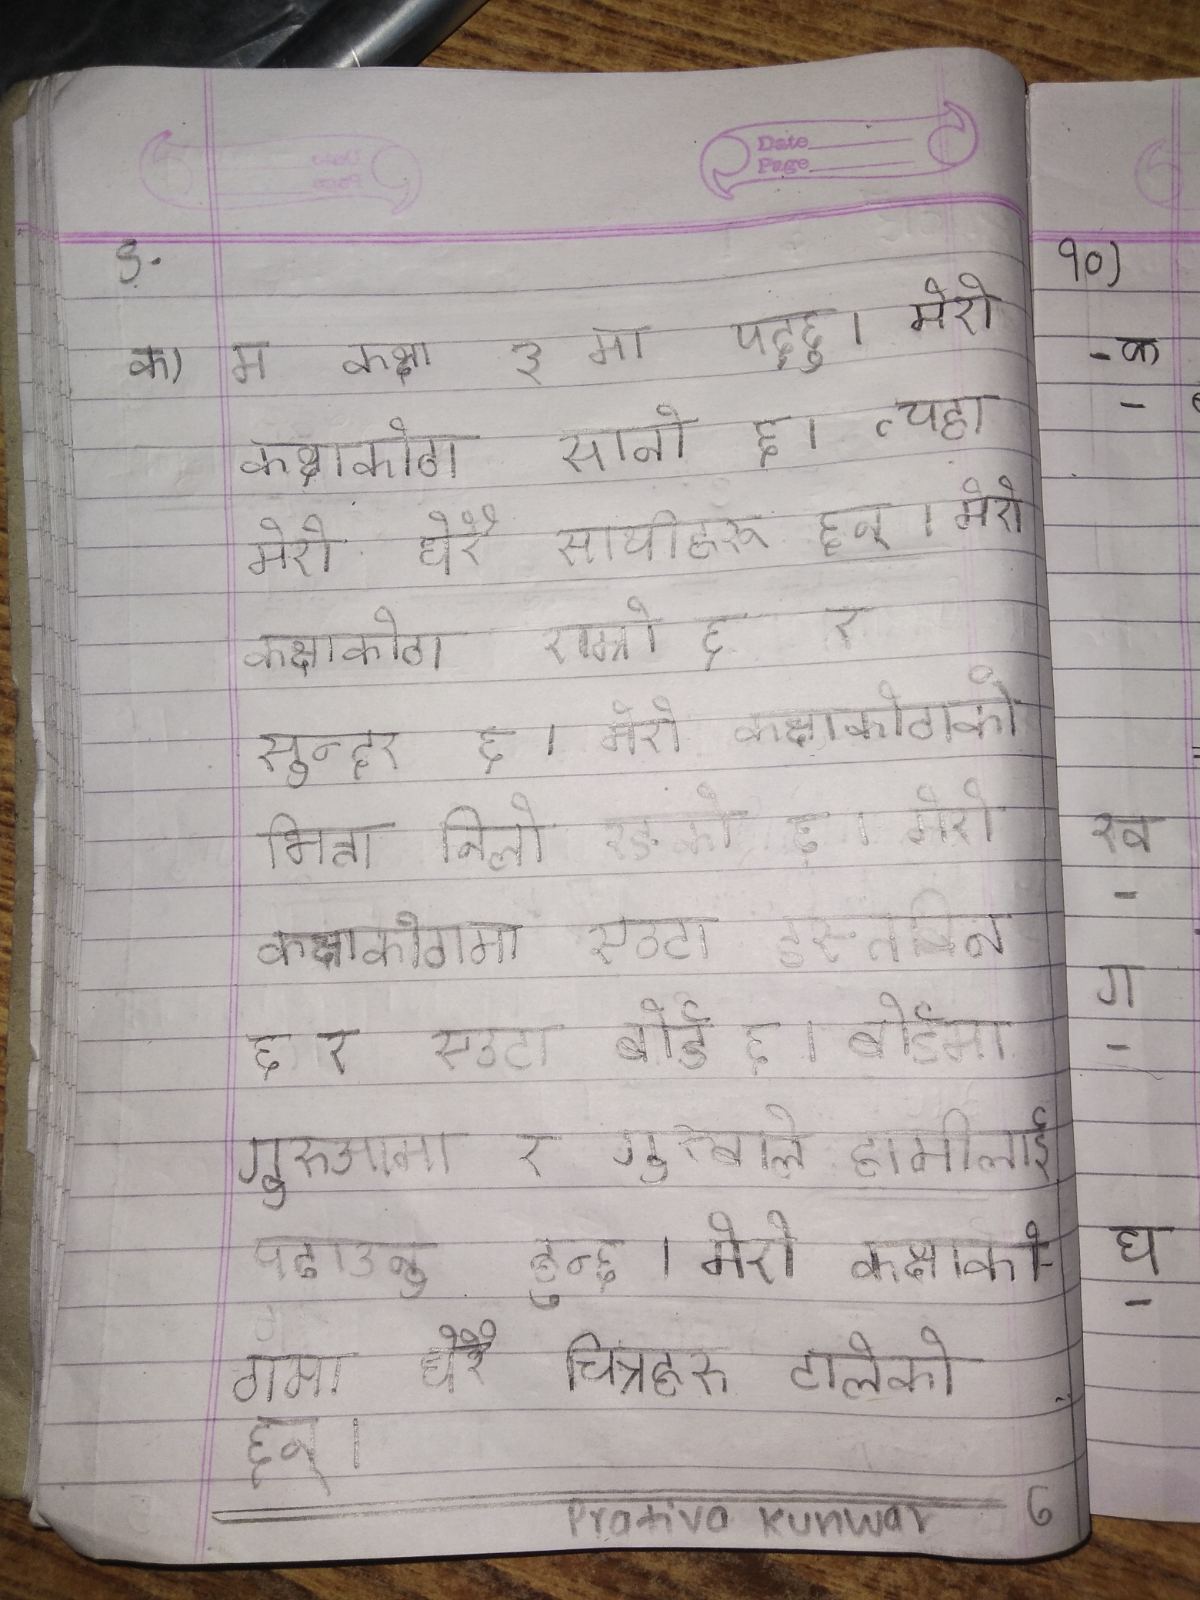 Date
Page
९.
क) म कक्षा ३ मा पढ्छु । मेरो
कक्षाकोठा सानो छ । त्यहा
मेरो धेरै साथीहरू छन् । मेरो
कक्षाकोठा राम्रो छ र
सुन्दर छ । मेरो कक्षाकोठाको
भित्ता निलो रङको छ । मेरो
कक्षाकोठामा एउटा डस्तबिन
छ र एउटा बोर्ड छ । बोर्डमा
गुरुआमा र गुरुबाले हामीलाई
पढाउनु हुन्छ । मेरो कक्षाको-
ठामा धेरै चित्रहरु टालेको
छन् ।
Prativa Kunwar 6
१०)
- क
-
ख
-
ग
-
घ
-